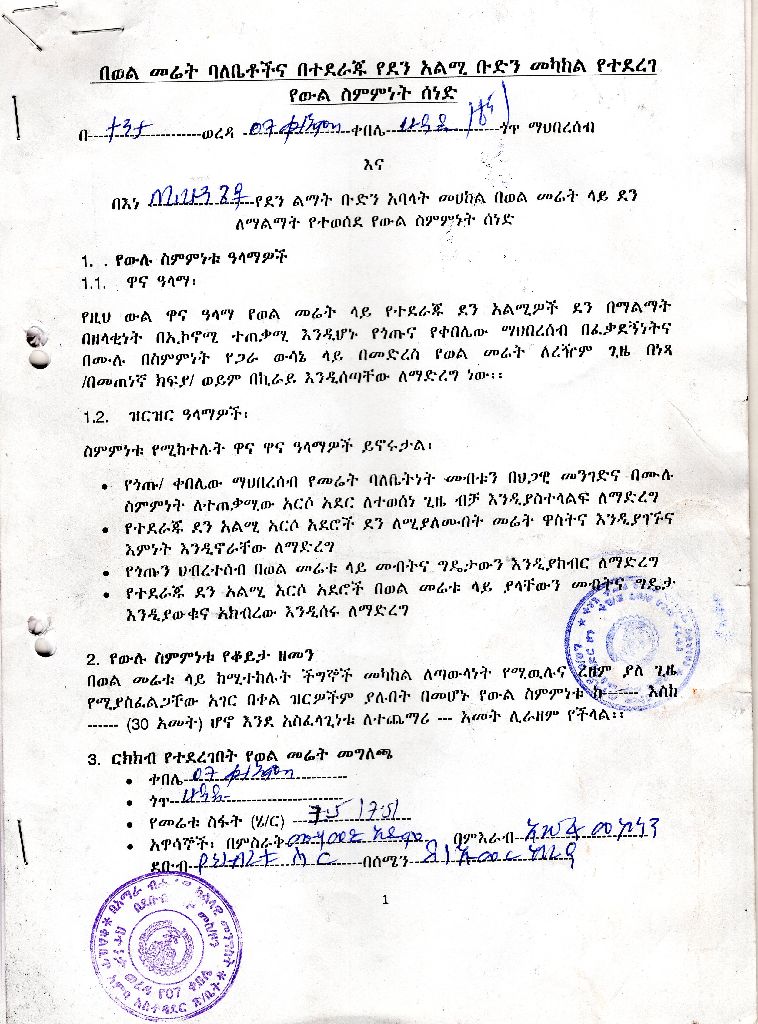 በወል መሬት ባለቤቶችና በተደራጁ የደን አልሚ ቡድን መካከል የተደረገ
የውል ስምምነት ሰነድ
በ---ተንታ---ወረዳ ---07 ---ቀበሌ------ጎጥ ማህበረሰብ
እና
በእነ ------የደን ልማት ቡድን አባላት መሀከል በወል መሬት ላይ ደን
ለማልማት የተወሰደ የውል ስምምነት ሰነድ
1. . የውሉ ስምምነቱ ዓላማዎች
1.1. ዋና ዓላማ፡
የዚህ ውል ዋና ዓላማ የወል መሬት ላይ የተደራጁ ደን አልሚዎች ደን በማልማት
በዘላቂነት በኢኮኖሚ ተጠቃሚ እንዲሆኑ የጎጡና የቀበሌው ማህበረሰብ በፈቃደኝነትና
በሙሉ በስምምነት የጋራ ውሳኔ ላይ በመድረስ የወል መሬት ለረዥም ጊዜ በነጻ
/በመጠነኛ ክፍያ/ ወይም በኪራይ እንዲሰጣቸው ለማድረግ ነው፡፡
1.2. ዝርዝር ዓላማዎች፡
ስምምነቱ የሚከተሉት ዋና ዋና ዓላማዎች ይኖሩታል፡
• የጎጡ/ ቀበሌው ማህበረሰብ የመሬት ባለቤትነት መብቱን በህጋዊ መንገድና በሙሉ
ስምምነት ለተጠቃሚው አርሶ አደር ለተወሰነ ጊዜ ብቻ እንዲያስተላልፍ ለማድረግ
• የተደራጁ ደን አልሚ አርሶ አደሮች ደን ለሚያለሙበት መሬት ዋስትና እንዲያገኙና
እምነት እንዲኖራቸው ለማድረግ
• የጎጡን ህብረተሰብ በወል መሬቱ ላይ መብትና ግዴታውን እንዲያከብር ለማድረግ
• የተደራጁ ደን አልሚ አርሶ አደሮች በወል መሬቱ ላይ ያላቸውን መብትና ግዴታ
እንዲያውቁና አክብረው እንዲሰሩ ለማድረግ
2. የውሉ ስምምነቱ የቆይታ ዘመን
በወል መሬቱ ላይ ከሚተከሉት ችግኞች መካከል ለጣውላነት የሚዉሉና ረዘም ያለ ጊዜ
የሚያስፈልጋቸው አገር በቀል ዝርዎችም ያሉበት በመሆኑ የውል ስምምነቱ ከ------ እስከ
------ (30 አመት) ሆኖ እንደ አስፈላጊነቱ ለተጨማሪ --- አመት ሊራዘም የችላል፡፡
3. ርክክብ የተደረገበት የወል መሬት መግለጫ
• ቀበሌ--07 ----------
• ጎጥ----------
• የመሬቱ ስፋት (ሄ/ር) ---7.5 /7.5/
• አዋሳኞች፡ በምስራቅ------ በምእራብ------
ደቡብ------በሰሜን
1